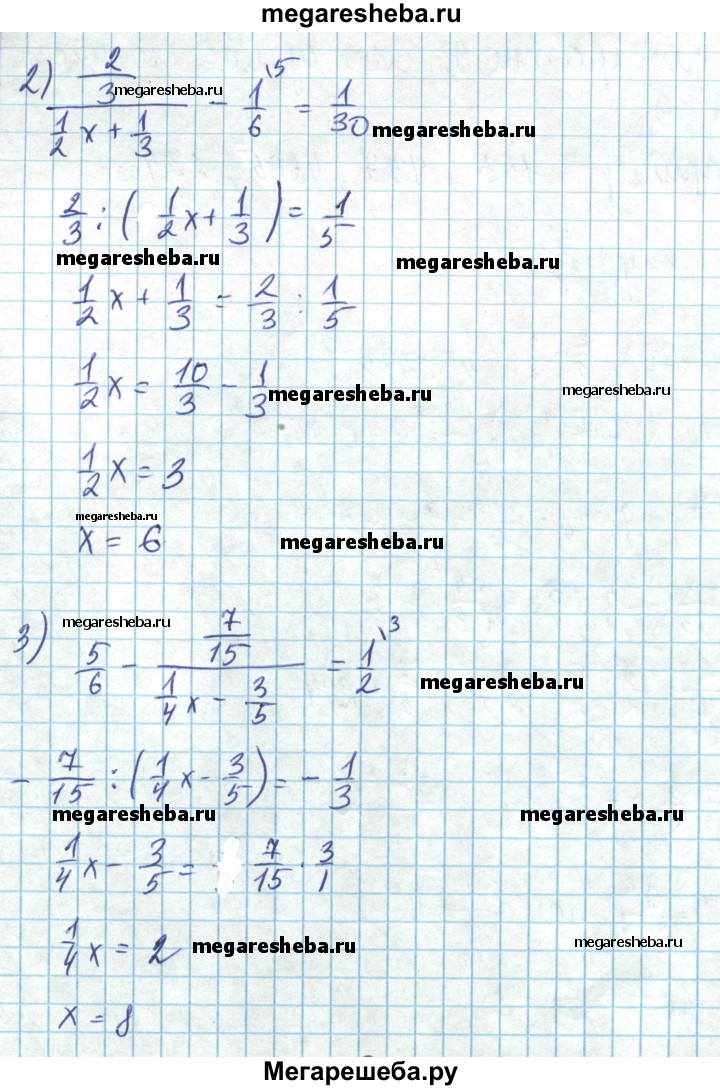 megaresheba.ru
2) (2/3)/(1/2 x + 1/3) - 1/6 \5 = 1/30
megaresheba.ru
megaresheba.ru
2/3 : (1/2 x + 1/3) = 1/5
megaresheba.ru
megaresheba.ru
1/2 x + 1/3 = 2/3 : 1/5
1/2 x = 10/3 - 1/3
megaresheba.ru
megaresheba.ru
1/2 x = 3
megaresheba.ru
x = 6
megaresheba.ru
megaresheba.ru
3) 5/6 - (7/15)/(1/4 x - 3/5) = 1/2 \3
megaresheba.ru
- 7/15 : (1/4 x - 3/5) = - 1/3
megaresheba.ru
megaresheba.ru
1/4 x - 3/5 = 7/15 · 3/1
1/4 x = 2
megaresheba.ru
megaresheba.ru
x = 8
Мегарешеба.ру